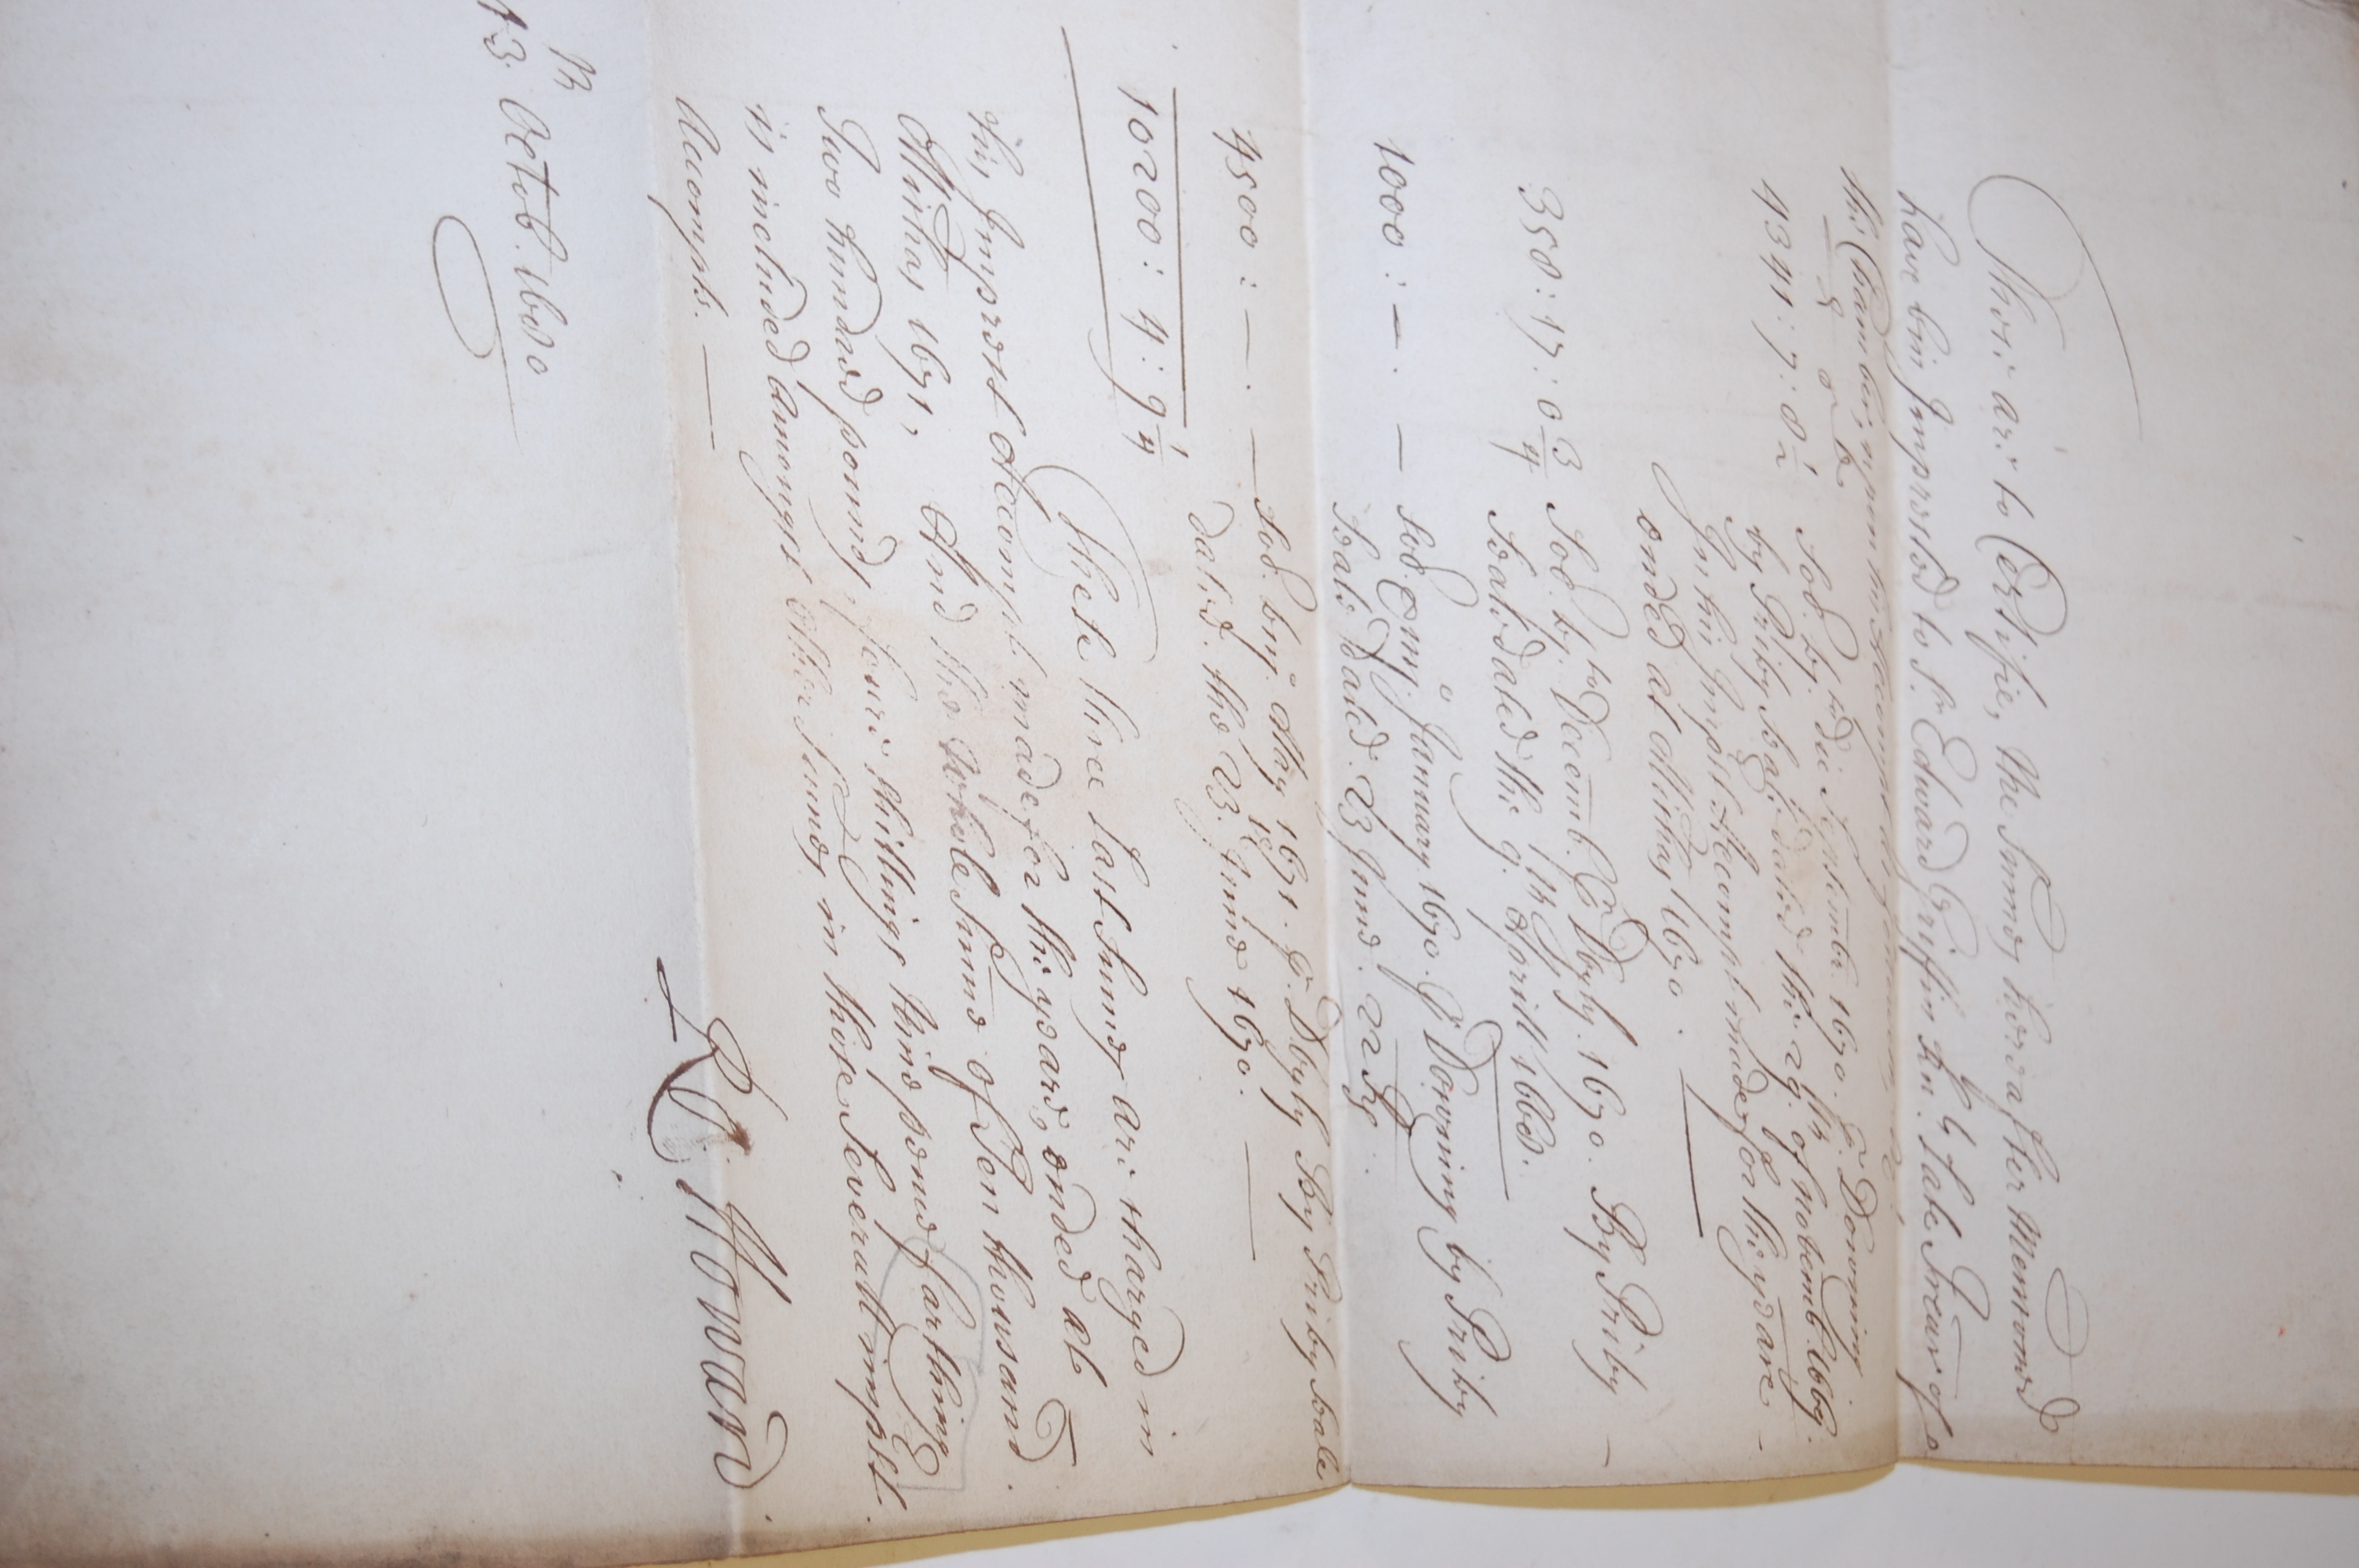 These are to Certifie, the Summes hereafter Mentioned
have bin Imprested to Sr. Edward Griffin Kn.t Late Trear of
the Chamber, upon his Accompt
£ s d
4341: 7: 8 1/2 Sol. by. to die Septembr. 1670. P. Downing
by Privy Seale dated the 29.th of Novemb.r 1669.
In his Imprest Accompt made for the yeare
ended at Michas 1670.
358: 17: 0 3/4 Sol. by. to Decemb. P Doyly. 1670. By Privy
Seale dated the 9.th of Aprill 1668.
1000: —. — Sol. January 1670. P Downing by Privy
Seale dated. 23 June. 22
4500: —. — Sol. by. May 1671. P. Doyly By Privy Seale
dated. the 23. June 1670.
10200: 4: 9 1/4
These three last Summes are charged in
his Imprest Accompt made for the yeare, ended at
Michas 1671, And the whole Summe of Ten thousand
Two hundred pounds foure shillings Nine pence farthing
is included amongst other Summes in those Severall imprest
Accompts.
R. Howard
13.th Octob. 1680